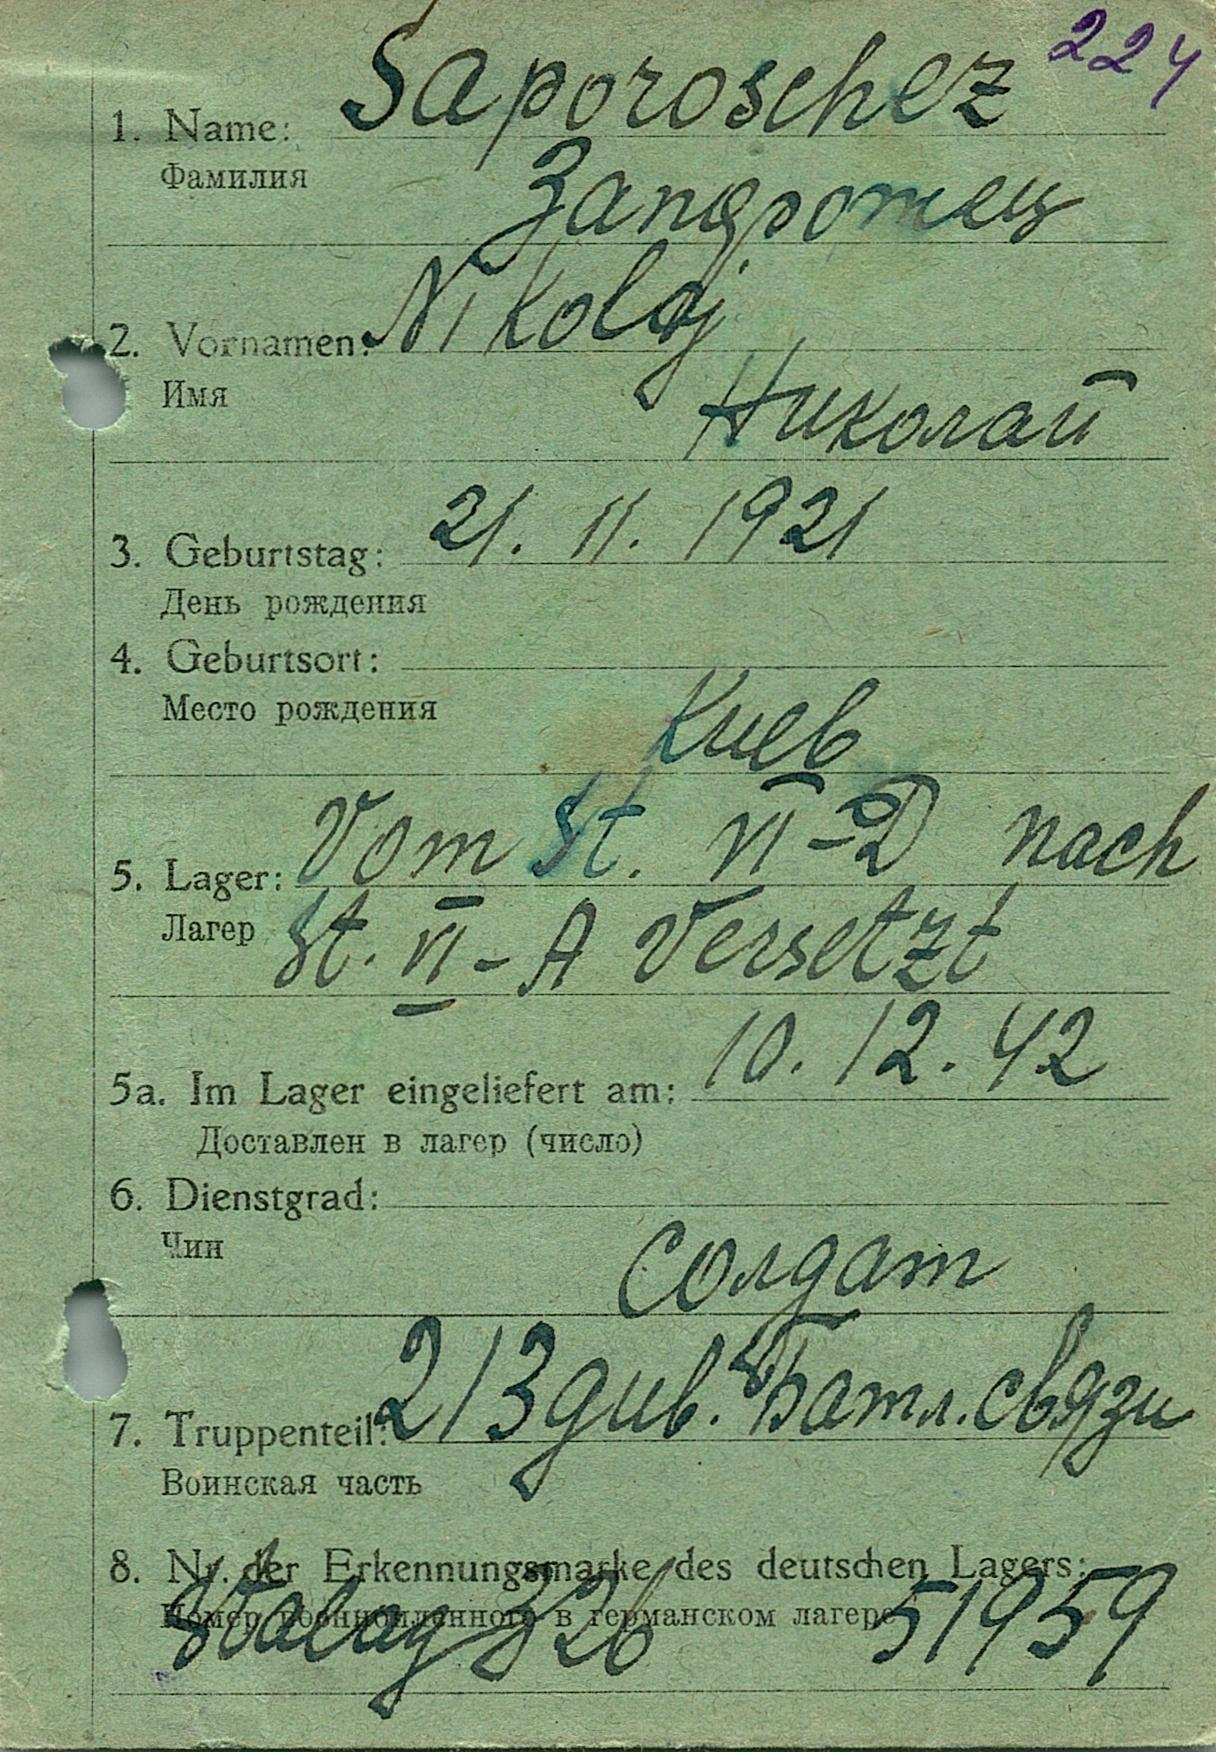 224
1. Name: Saporoschez
Фамилия
Запорожец
2. Vornamen: Nikolaj
Имя
Николай
3. Geburtstag: 21. 11. 1921
День рождения
4. Geburtsort:
Место рождения
Киев
5. Lager: Vom St. VI-D nach
Лагер St. VI-A versetzt
5a. Im Lager eingeliefert am: 10. 12. 42
Доставлен в лагер (число)
6. Dienstgrad:
Чин
Солдат
7. Truppenteil: 213 див. Батл. связи
Воинская часть
8. Nr. der Erkennungsmarke des deutschen Lagers:
Номер военнопленного в германском лагере
Stalag 326 51959